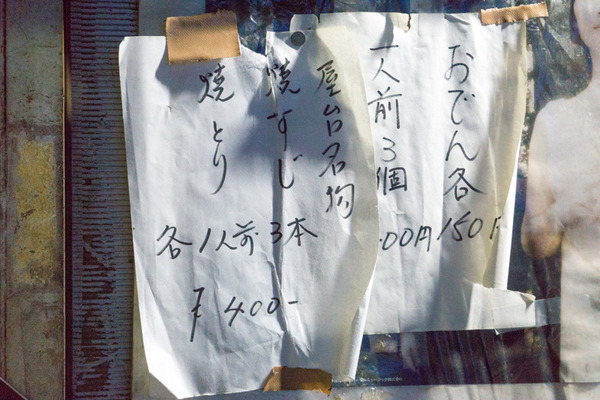 おでん各150円
一人前3個
00円
屋台名物
焼すじ
焼とり
各1人前3本
¥400-